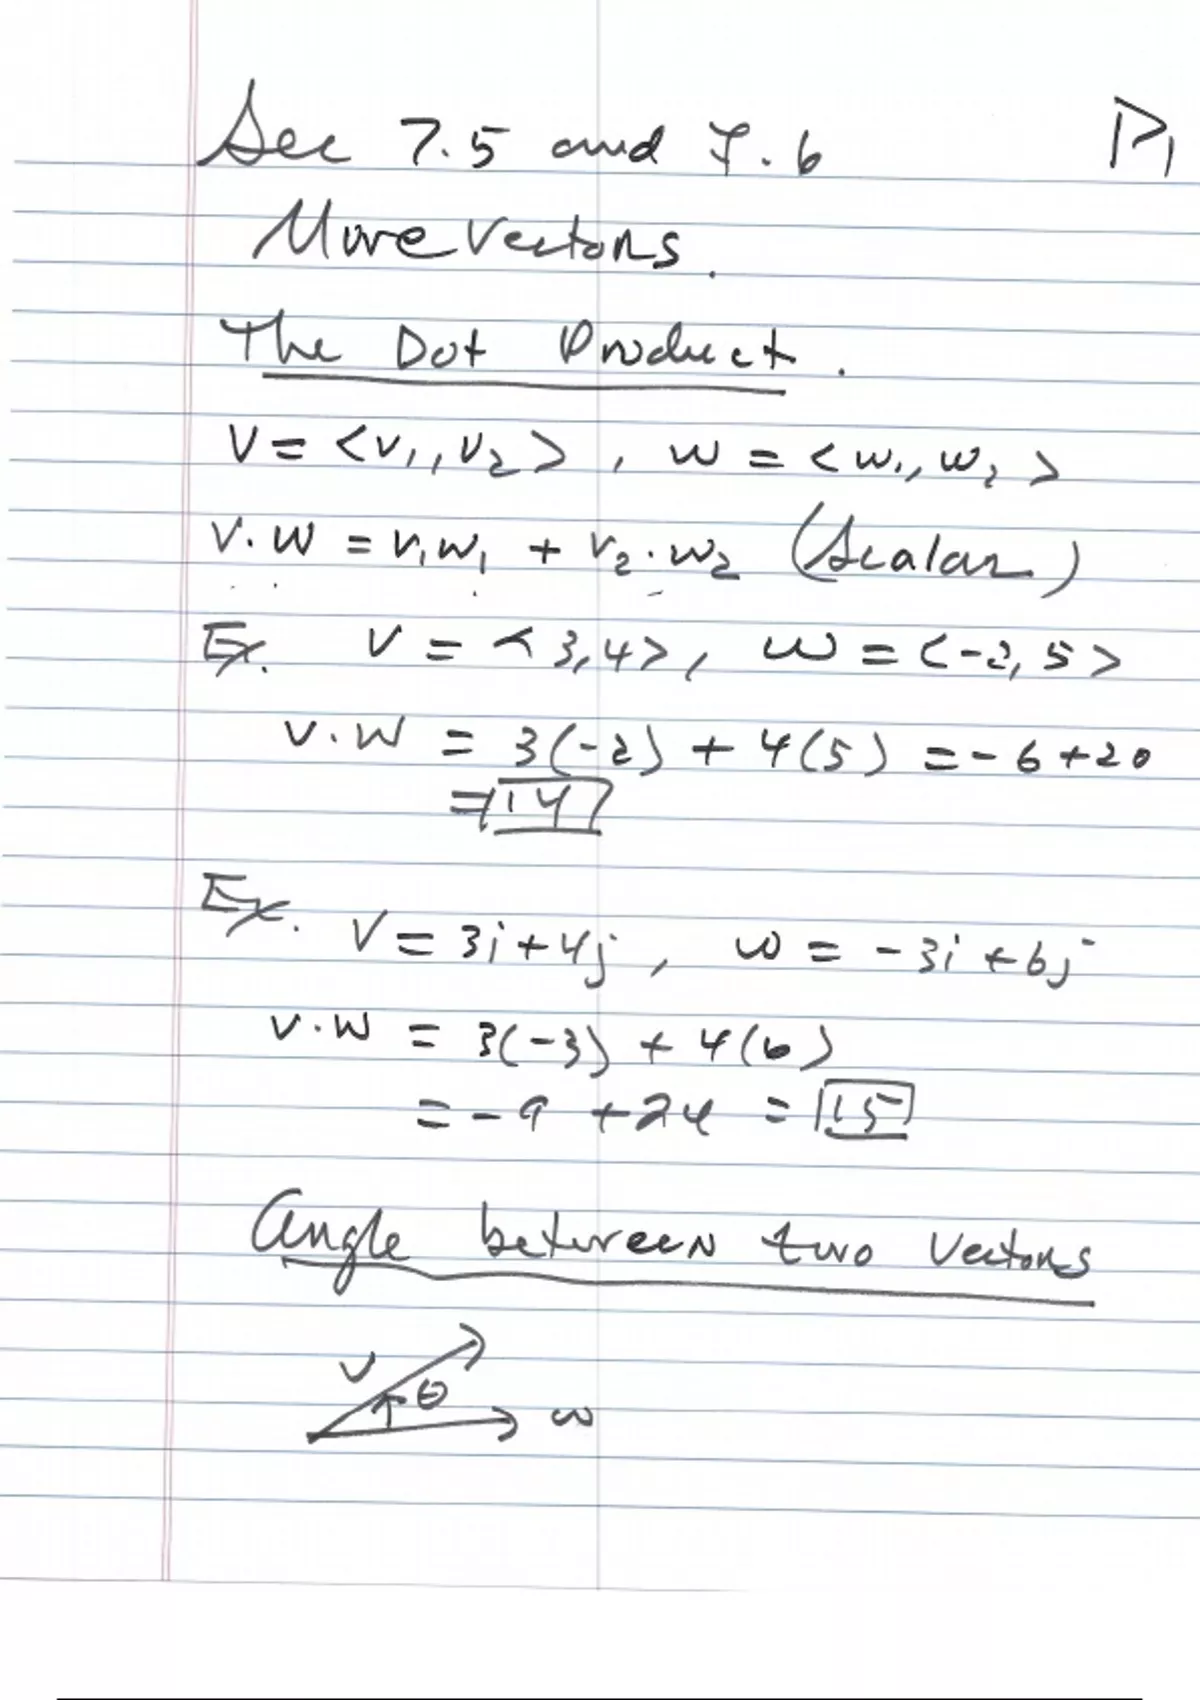 Sec 7.5 and 7.6 P1
More Vectors.
The Dot Product.
V = <v₁, v₂>, w = <w₁, w₂>
V·W = v₁w₁ + v₂·w₂ (Scalar)
Ex. V = <3,4>, w = <-2, 5>
V·W = 3(-2) + 4(5) = -6+20
= 14
Ex.
V = 3i+4j, w = -3i +6j
V·W = 3(-3) + 4(6)
= -9 +24 = 15
Angle between two Vectors
V
θ
w